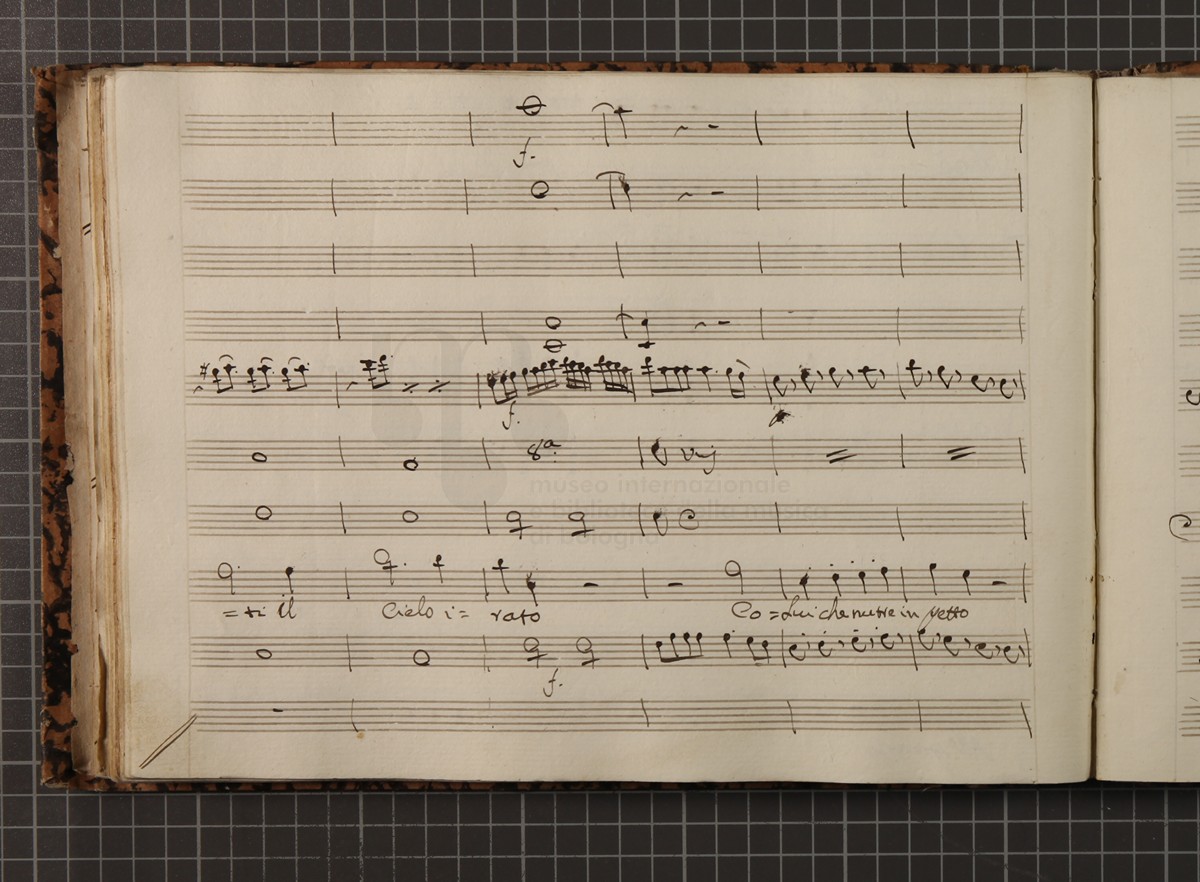 f.
f.
8ª
museo internazionale
e biblioteca della musica
di bologna
=ti il Cielo i= rato Co=lui che nutre in petto
f.